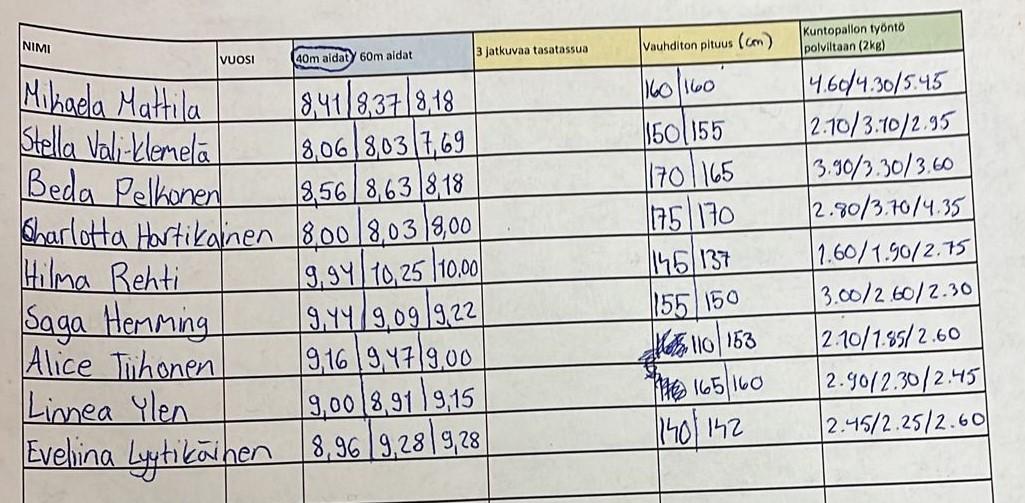 NIMI VUOSI 40m aidat/ 60m aidat 3 jatkuvaa tasatassua Vauhditon pituus (cm) Kuntopallon työntö polviltaan (2kg)
Mihaela Mattila 8,41 | 8,37 | 8,18 160 | 160 4.60/4.30/5.45
Stella Vali-Klemelä 8,06 | 8,03 | 7,69 150 | 155 2.70/3.70/2.95
Beda Pelkonen 8,56 | 8,63 | 8,18 170 | 165 3.90/3.30/3.60
Charlotta Hartikainen 8,00 | 8,03 | 8,00 175 | 170 2.80/3.70/4.35
Hilma Rehti 9,94 | 10,25 | 10.00 145 | 137 1.60/1.90/2.75
Saga Hemming 9,44 | 9,09 | 9,22 155 | 150 3.00/2.60/2.30
Alice Tiihonen 9,16 | 9,47 | 9,00 110 | 153 2.10/1.85/2.60
Linnea Ylen 9,00 | 8,91 | 9,15 165 | 160 2.90/2.30/2.45
Eveliina Lyytikäinen 8,96 | 9,28 | 9,28 140 | 142 2.45/2.25/2.60